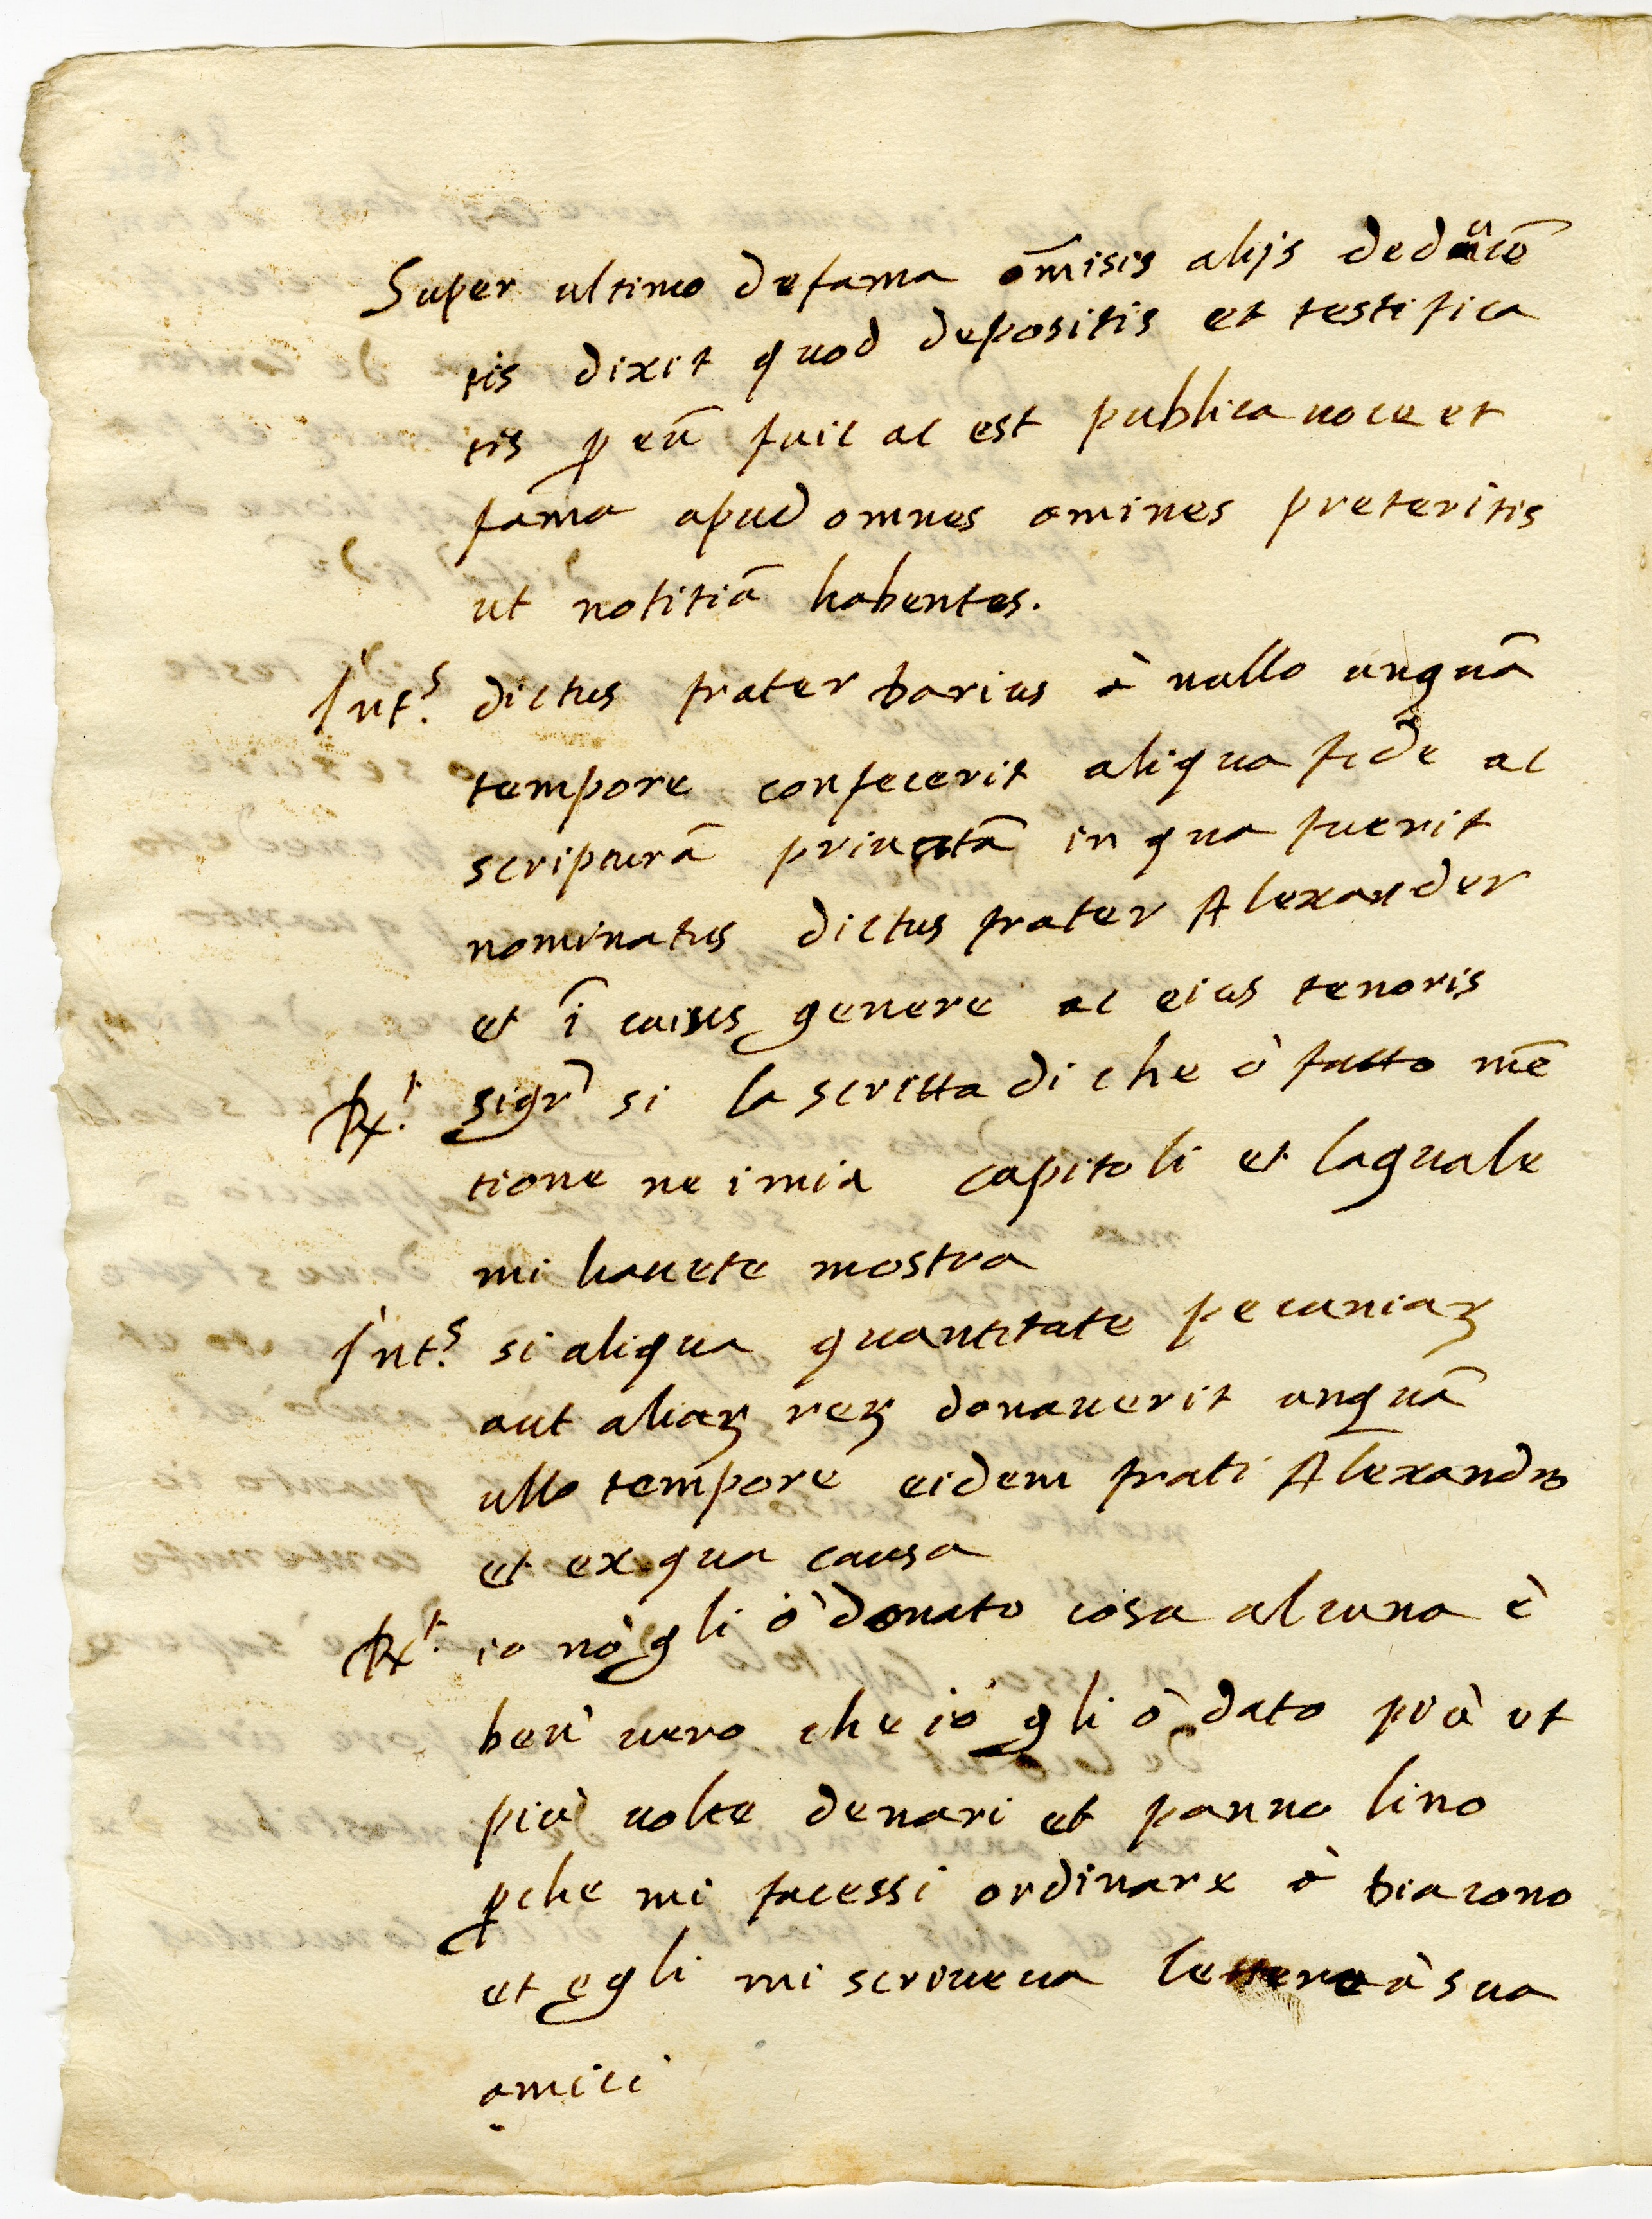 Super ultimo de fama om̄isis alijs deducē
tis dixit quod depositis et testifica
tis ꝑ eū fuit ac est publica uoce et
fama apud omnes omines preteritis
ut notitiā habentes.
Int.s dictus frater darius à nullo unquā
tempore confecerit aliqua fide ac
scripturā priuatā in qua fuerit
nominatus dictus frater Alexander
et ī cuius genere ac eius tenoris
Rx.t sigr si la scritta di che ò fatto mē
tione ne i miei capitoli et laquale
mi hauete mostra
Int.s si aliqua quantitate pecuniaꝝ
aut aliaꝝ reꝝ donauerit unquā
ullo tempore eidem frati Alexandro
et ex qua causa
Rx.t io nō gli ò donato cosa alcuna è
ben uero che io gli ò dato più et
più uolte denari et panno lino
ꝑche mi facessi ordinare à diacono
et egli mi scriueua lettere à sua
amici